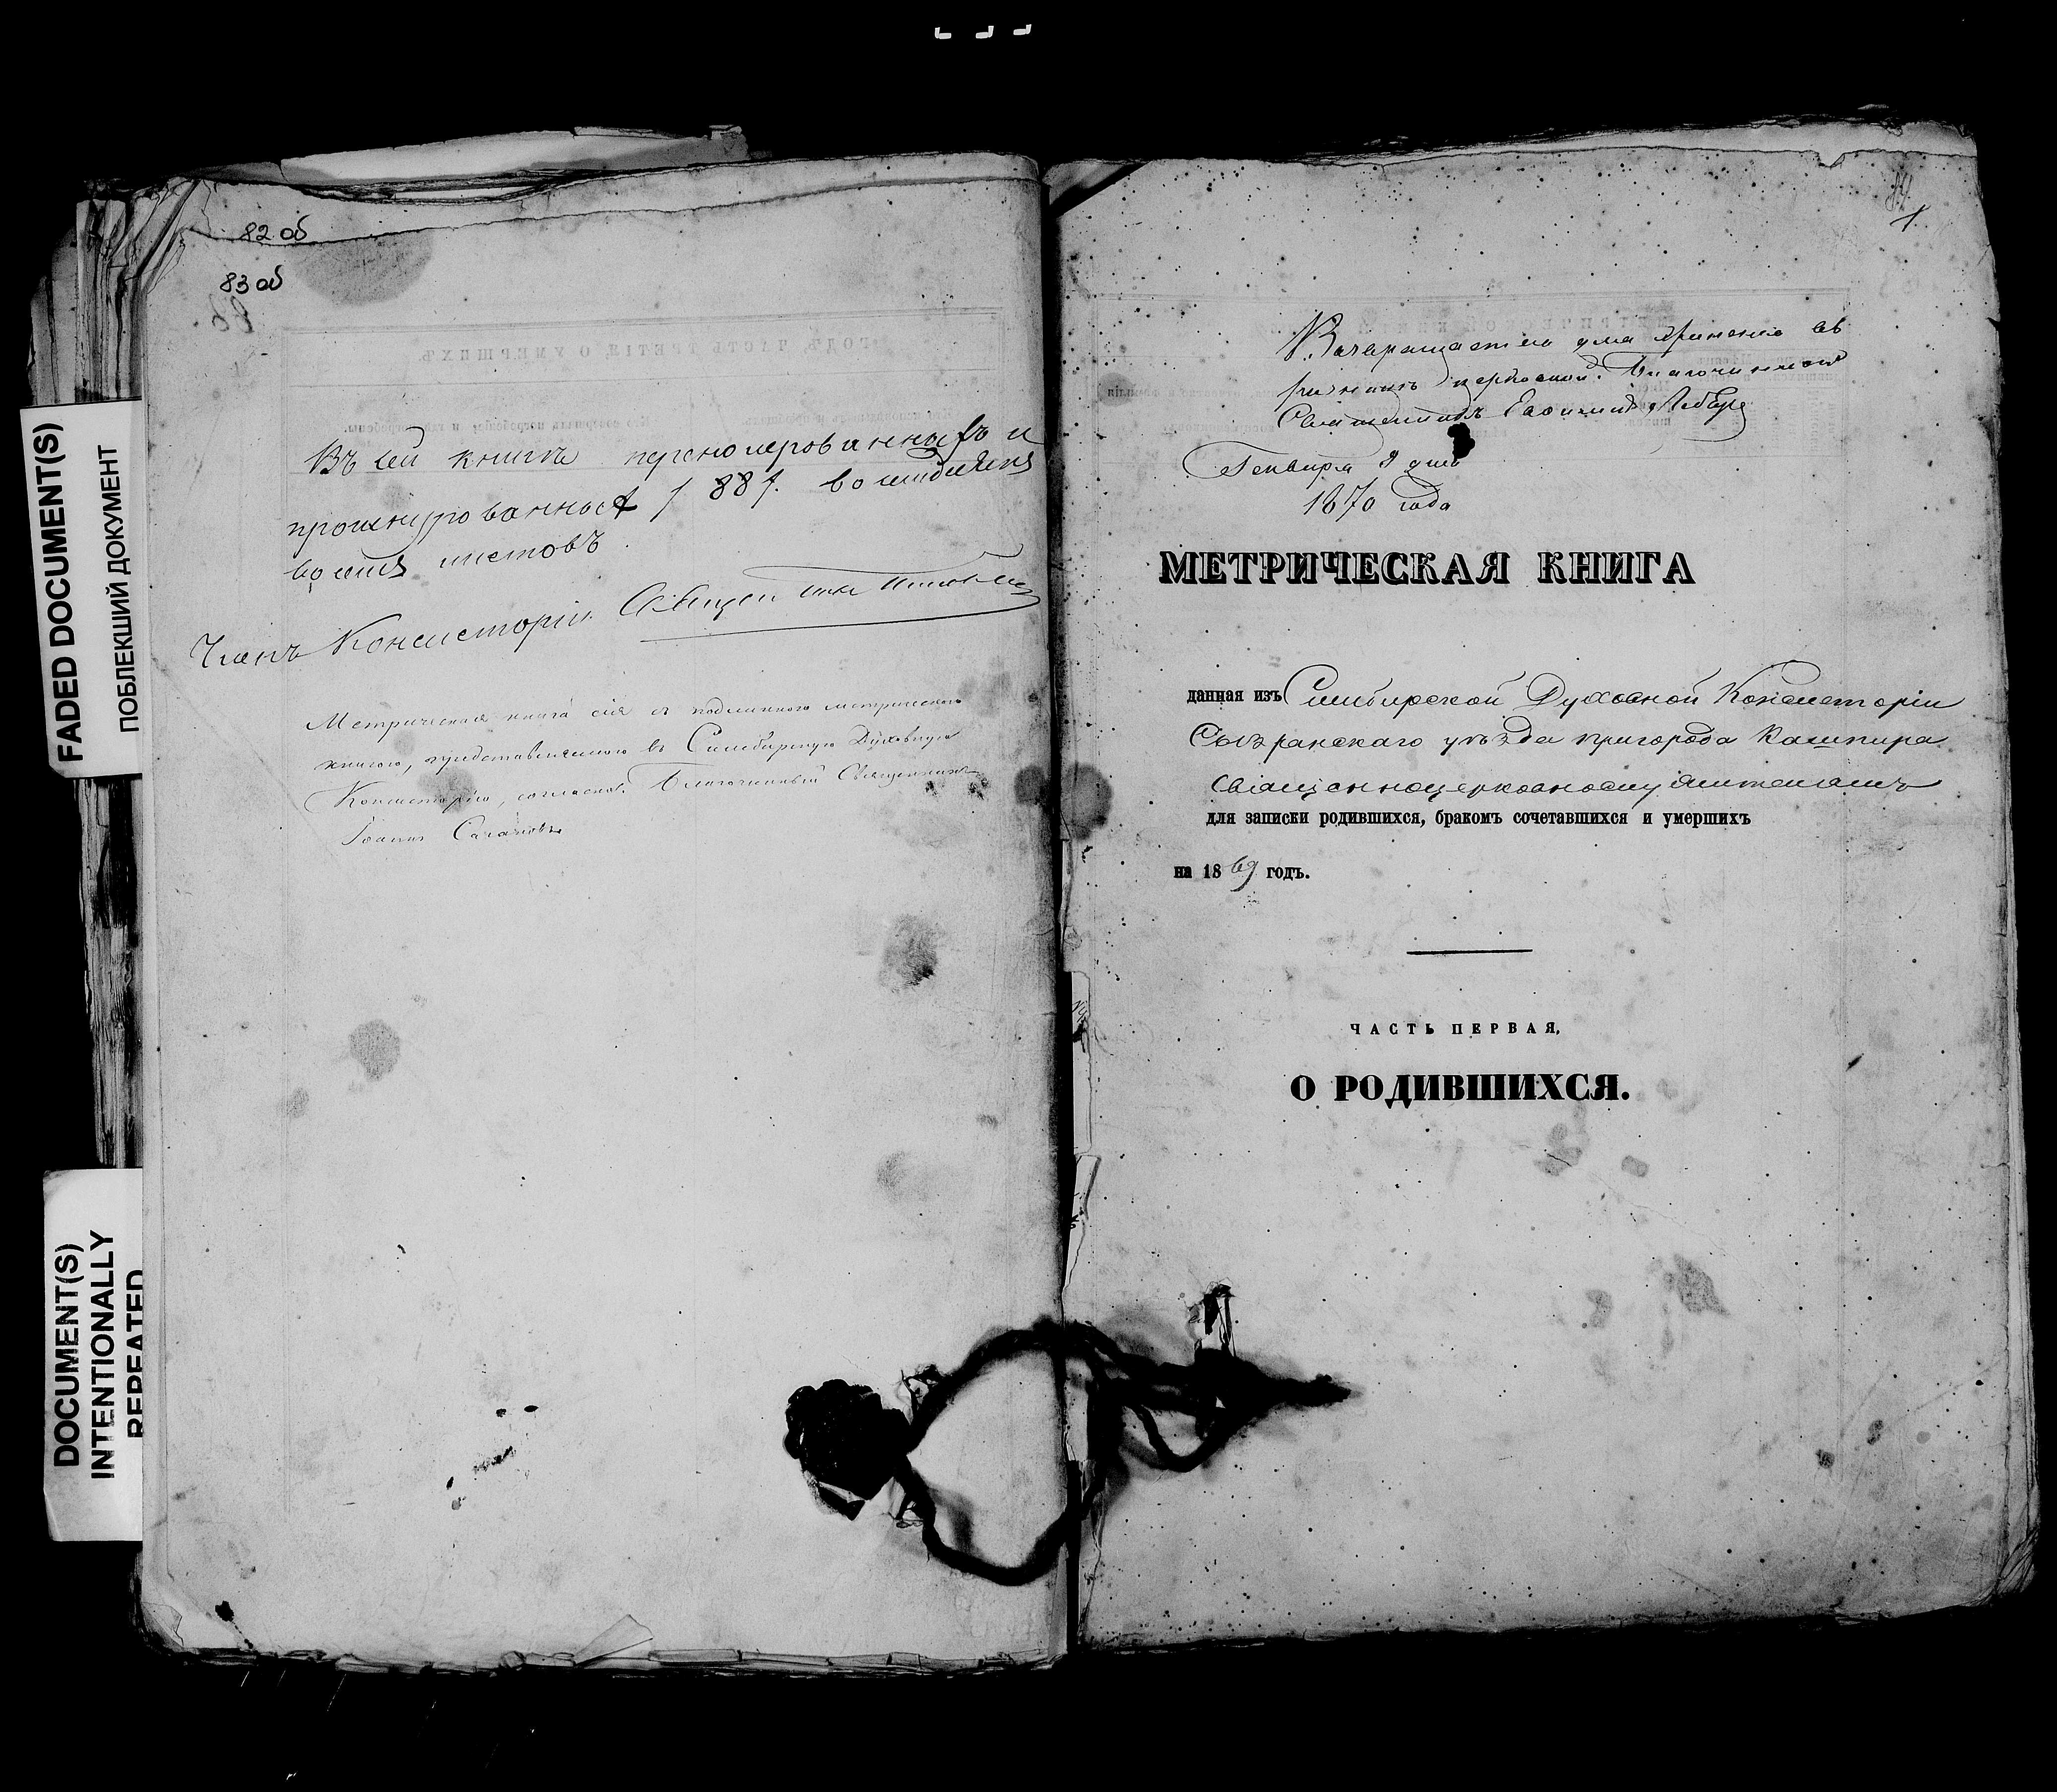 82 об
83 об
Въ сей книгѣ перенумерованныхъ и
прошнурованныхъ / 88 /. восемьдесятъ
восемь листовъ
Членъ Консисторіи Священникъ
Метрическая книга сія съ подлинною метрическою
книгою, представленною въ Симбирскую Духовную
Консисторію, согласна. Благочинный Священникъ
Іоаннъ
FADED DOCUMENT(S)
ПОБЛЕКШИЙ ДОКУМЕНТ
DOCUMENT(S)
INTENTIONALLY
REPEATED
1
Возвращается для храненія въ
ризницѣ церковной. Благочинный
Священникъ
Генваря 9 дня
1870 года
МЕТРИЧЕСКАЯ КНИГА
данная изъ Симбирской Духовной Консисторіи
Сызранскаго уѣзда пригорода Кашпира
священноцерковнослужителямъ
для записки родившихся, бракомъ сочетавшихся и умершихъ
на 1869 годъ.
ЧАСТЬ ПЕРВАЯ,
О РОДИВШИХСЯ.